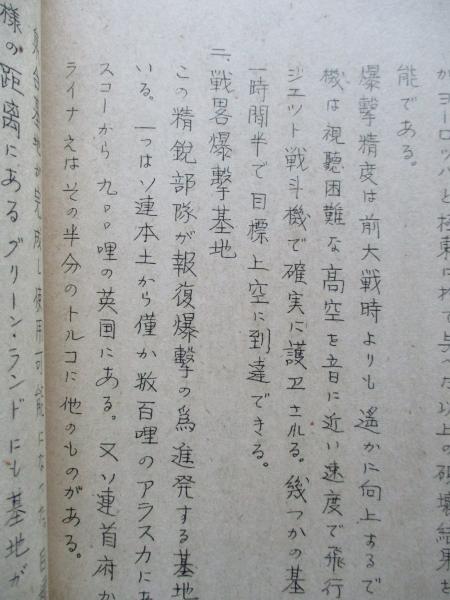 がヨーロッパと極東に於て与へた以上の破壊結果を
能である。
爆撃精度は前大戦時よりも遥かに向上するで
機は視聴困難な高空を音に近い速度で飛行
ジエット戦斗機で確実に護卫される。幾つかの基
一時間半で目標上空に到達できる。
二、戦畧爆撃基地
この精鋭部隊が報復爆撃の為進発する基地
いる。一つはソ連本土から僅か数百哩のアラスカにあ
スコーから九〇〇哩の英国にある。又ソ連首府か
ライナえはその半分のトルコに他のものがある。
基地が完成し使用可能になった
様の距離にあるグリーン・ランドにも基地が